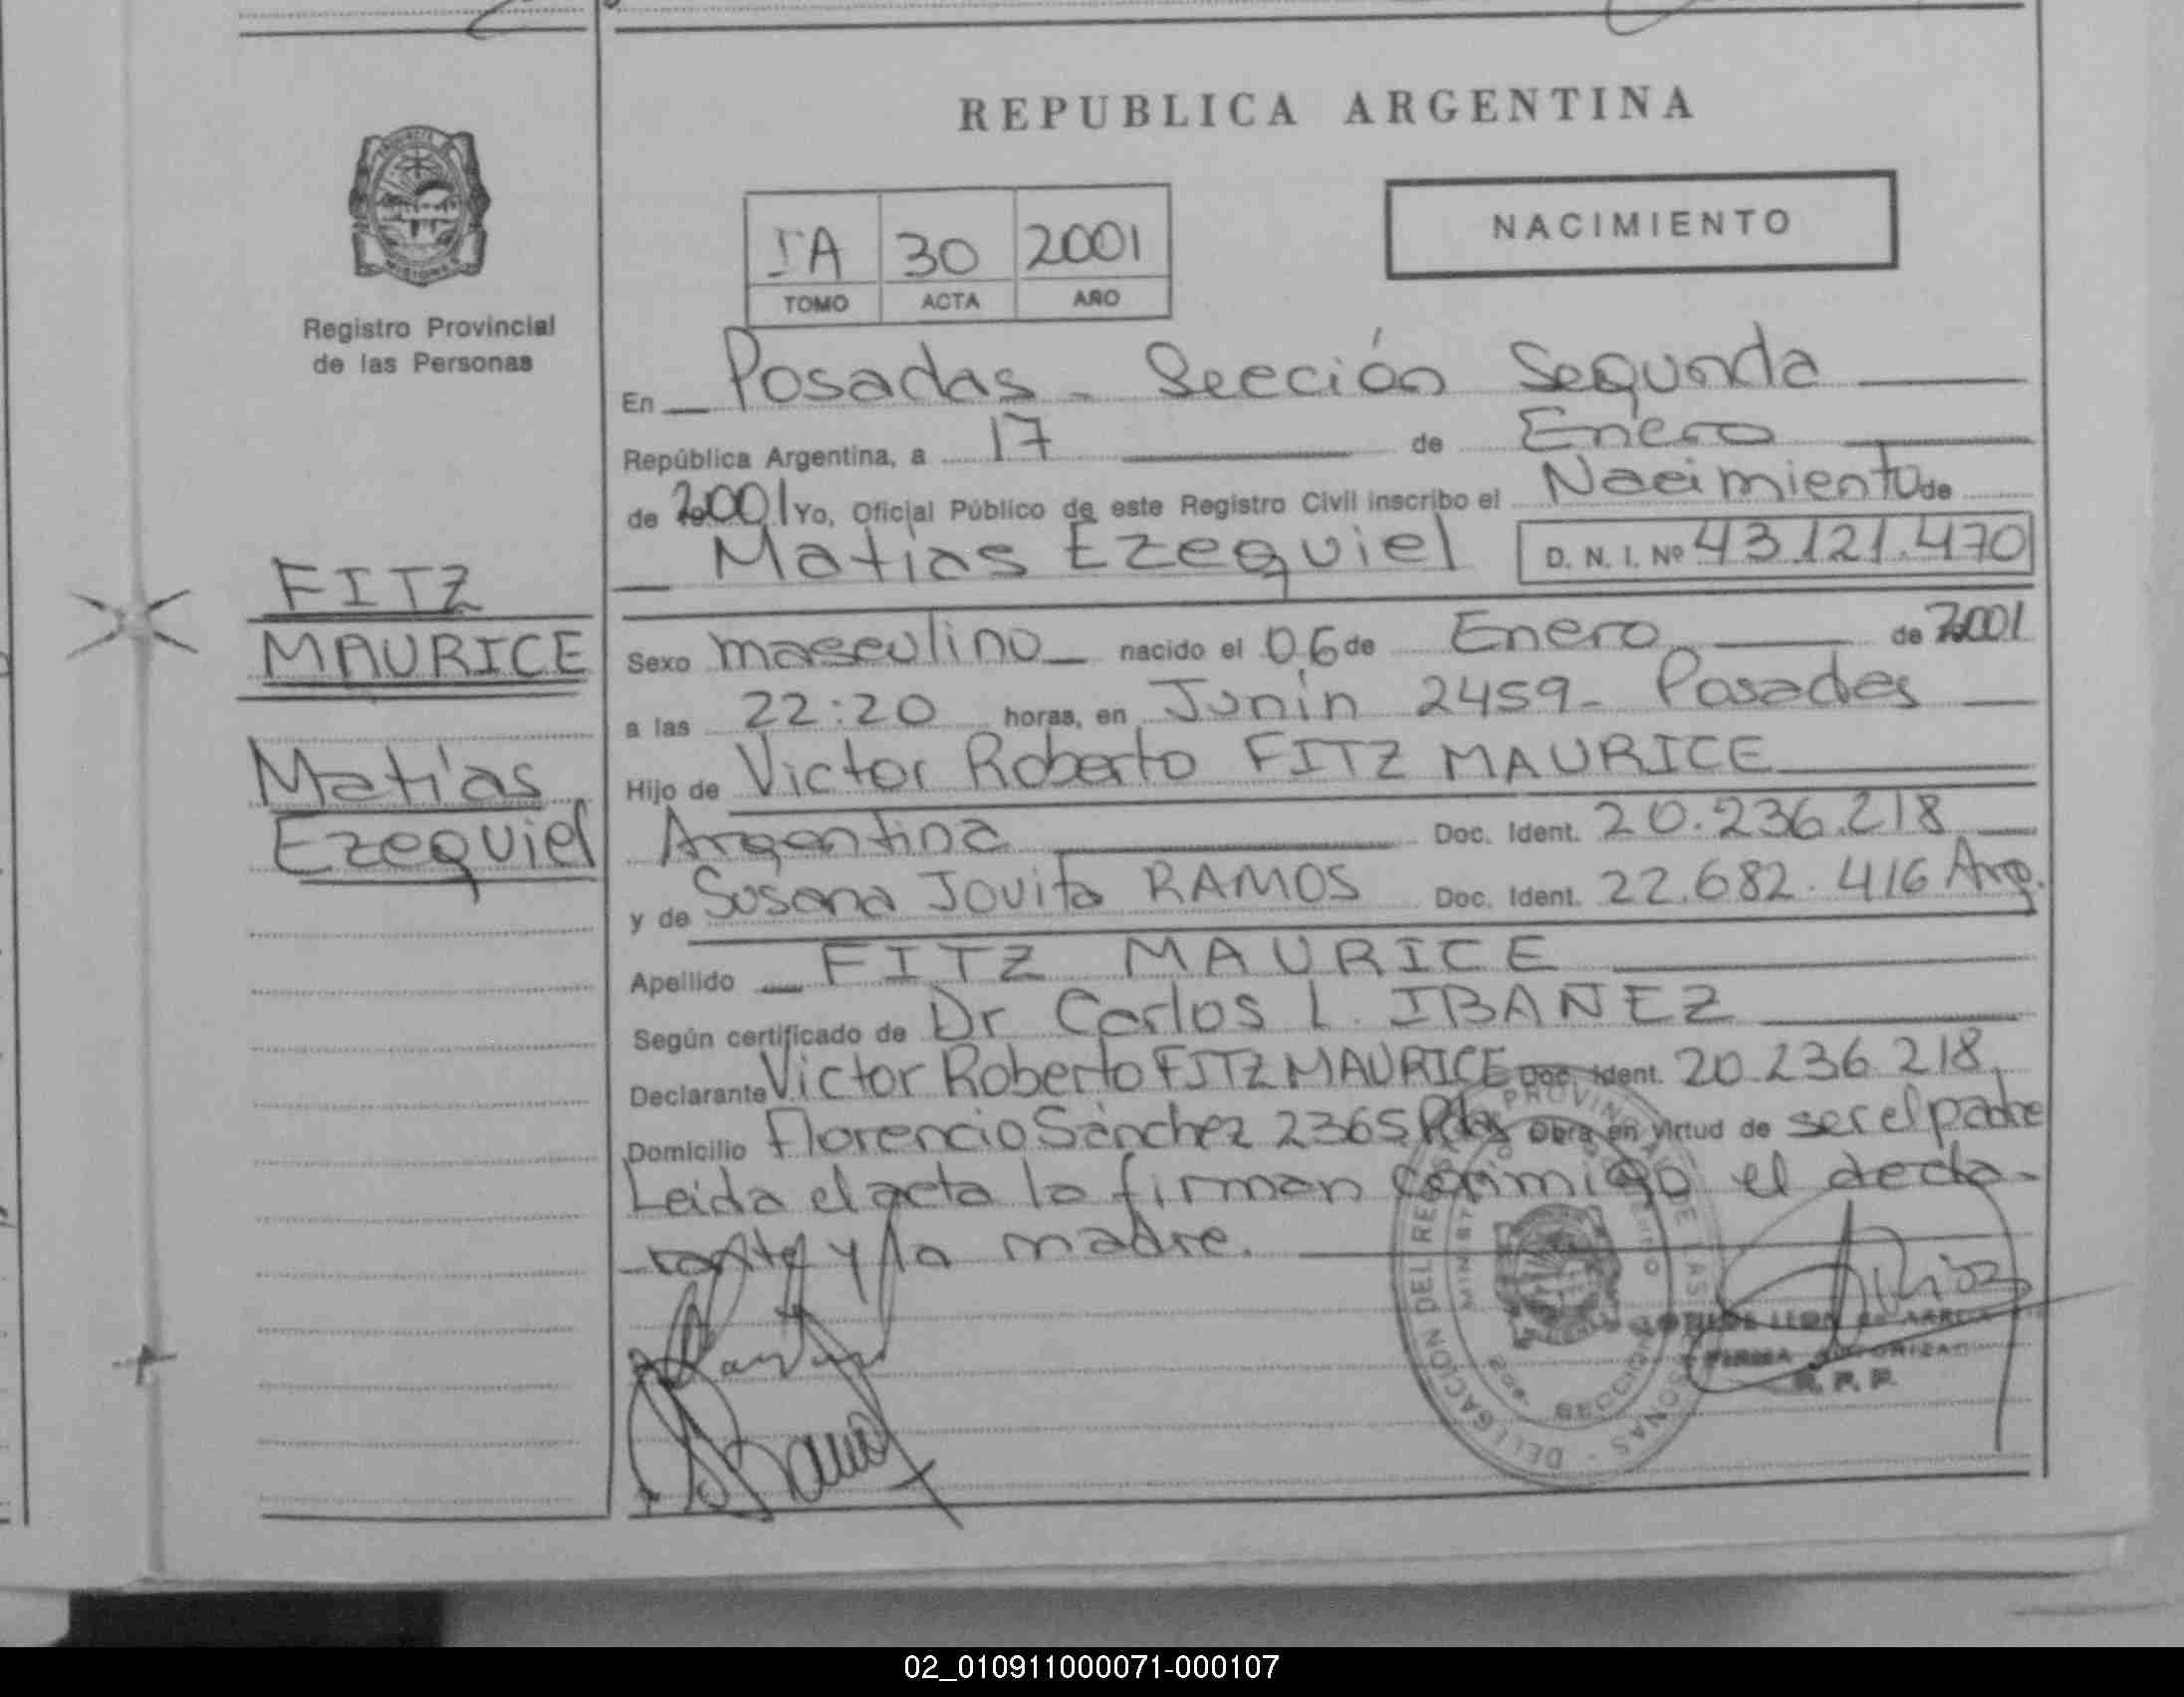 REPUBLICA ARGENTINA
NACIMIENTO
IA 30 2001
TOMO ACTA AÑO
Registro Provincial
de las Personas
FITZ
MAURICE
Matías
Ezequiel
En Posadas - Sección Segunda
República Argentina, a 17 de Enero
de 2001 Yo, Oficial Público de este Registro Civil inscribo el Nacimiento de
Matias Ezequiel D. N. I. Nº 43.121.470
Sexo masculino nacido el 06 de Enero de 2001
a las 22:20 horas, en Junín 2459 - Posadas
Hijo de Victor Roberto FITZ MAURICE
Argentina Doc. Ident. 20.236.218
y de Susana Jovita RAMOS Doc. Ident. 22.682.416 Arg.
Apellido FITZ MAURICE
Según certificado de Dr Carlos L. IBAÑEZ
Declarante Victor Roberto FITZ MAURICE Doc. Ident. 20.236.218
Domicilio Florencio Sánchez 2365 Pdas Obra en virtud de ser el padre
Leida el acta la firman conmigo el decla-
rante y la madre.
DELEGACION DEL REGISTRO PROVINCIAL DE LAS PERSONAS
2da. SECCION
FIRMA AUTORIZADA
R. P. P.
02_010911000071-000107